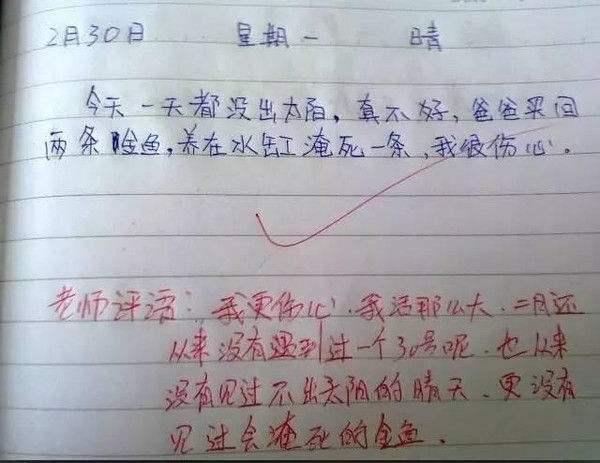 2月30日 星期一 晴
今天一天都没出太阳，真不好，爸爸买回
两条金鱼，养在水缸淹死一条，我很伤心。
老师评语：我更伤心.我活那么大.二月还
从来没有遇到过一个30号呢.也从来
没有见过不出太阳的晴天.更没有
见过会淹死的金鱼.